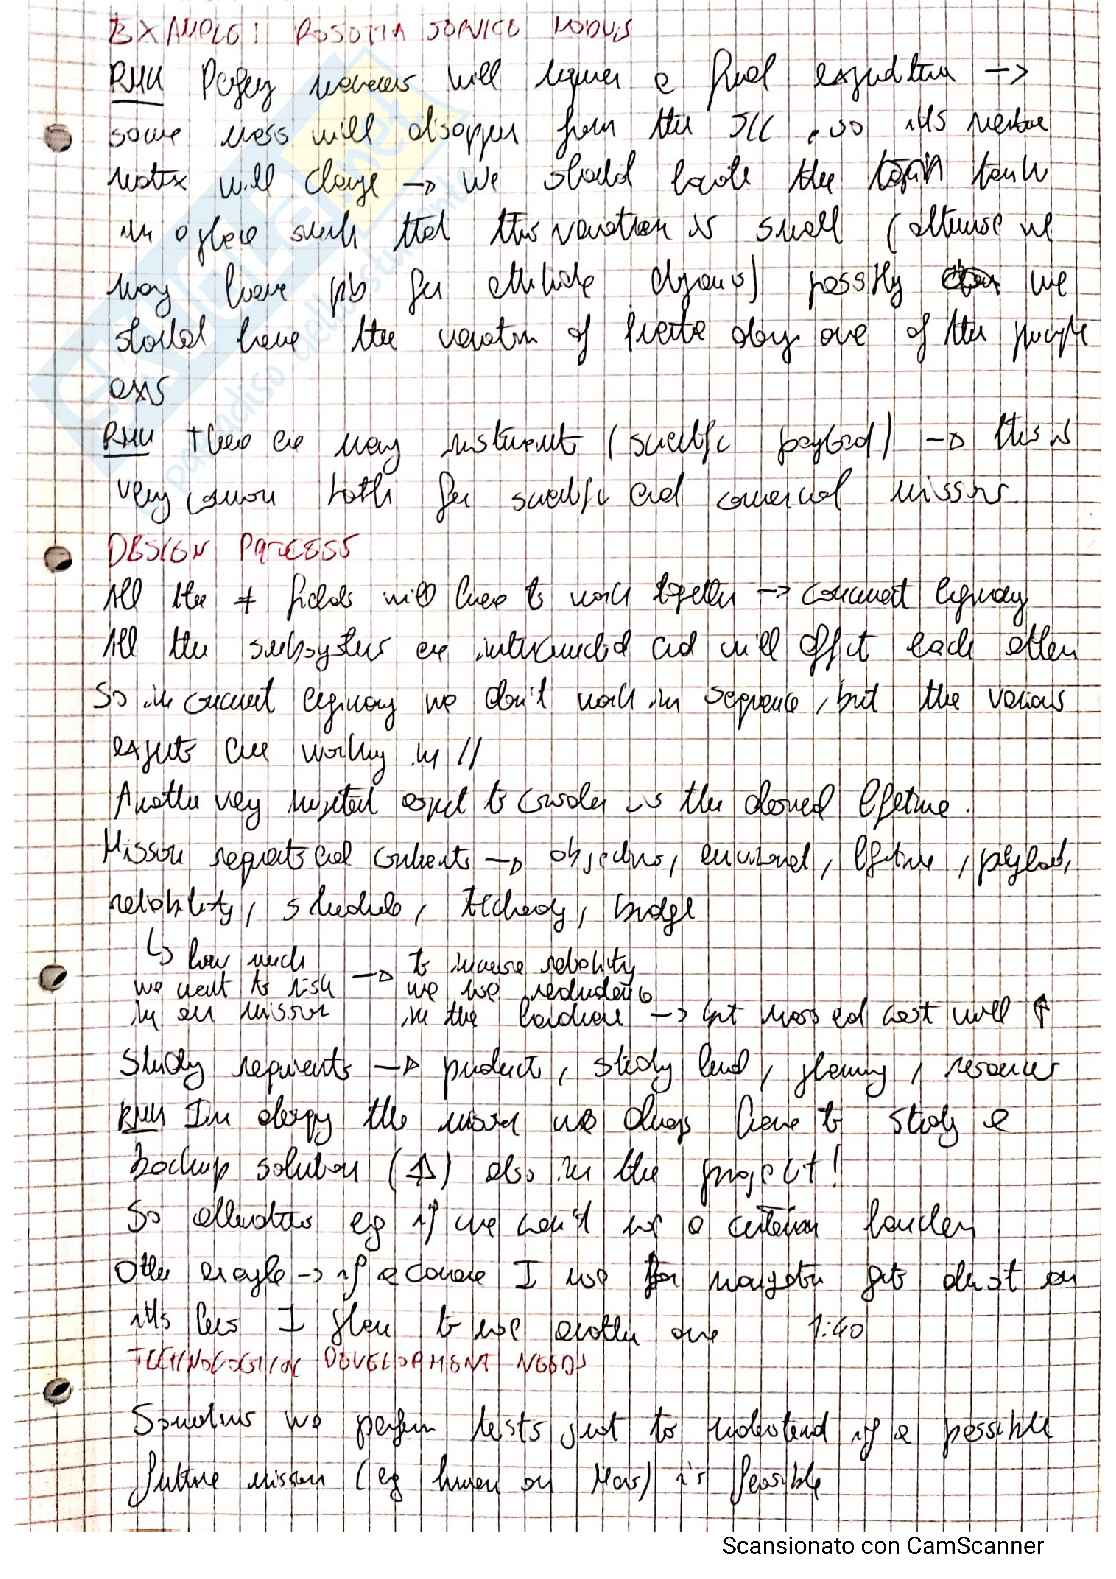 EXAMPLE: ROSETTA SERVICE MODULE
RMK will require a fuel expenditure →
some mass will disappear from the S/C, so its inertia
matrix will change → we should locate the tank
in a place such that this variation is small (otherwise we
may have pb for attitude dynamics) possibly we
should have the variation of inertia along one of the principle
axis
RMK there are many instrument (scientific payload) → this is
very common both for scientific and commercial missions
DESIGN PROCESS
All the ≠ fields will have to work together → concurrent engineering
All the subsystems are interconnected and will affect each other
So in concurrent engineering we don't work in sequence, but the various
experts are working in //
Another very important aspect to consider is the desired lifetime.
Mission requirements and constraints → objectives, environment, lifetime, payload,
reliability, schedule, technology, budget
↳ how much → to increase reliability
we want to risk we use redundancy
in our mission in the hardware → but mass and cost will ↑
Study requirements → product, study level, planning, resources
RMK In the mission we always have to study a
backup solution also in the project!
So alternatives eg if we can't use a certain launcher
Other example → if a camera I use for navigation gets dust on
its lens I plan to use another one 1:40
TECHNOLOGICAL DEVELOPMENT NEEDS
Sometimes we perform tests just to understand if a possible
future mission (eg human on Mars) is feasible
Scansionato con CamScanner